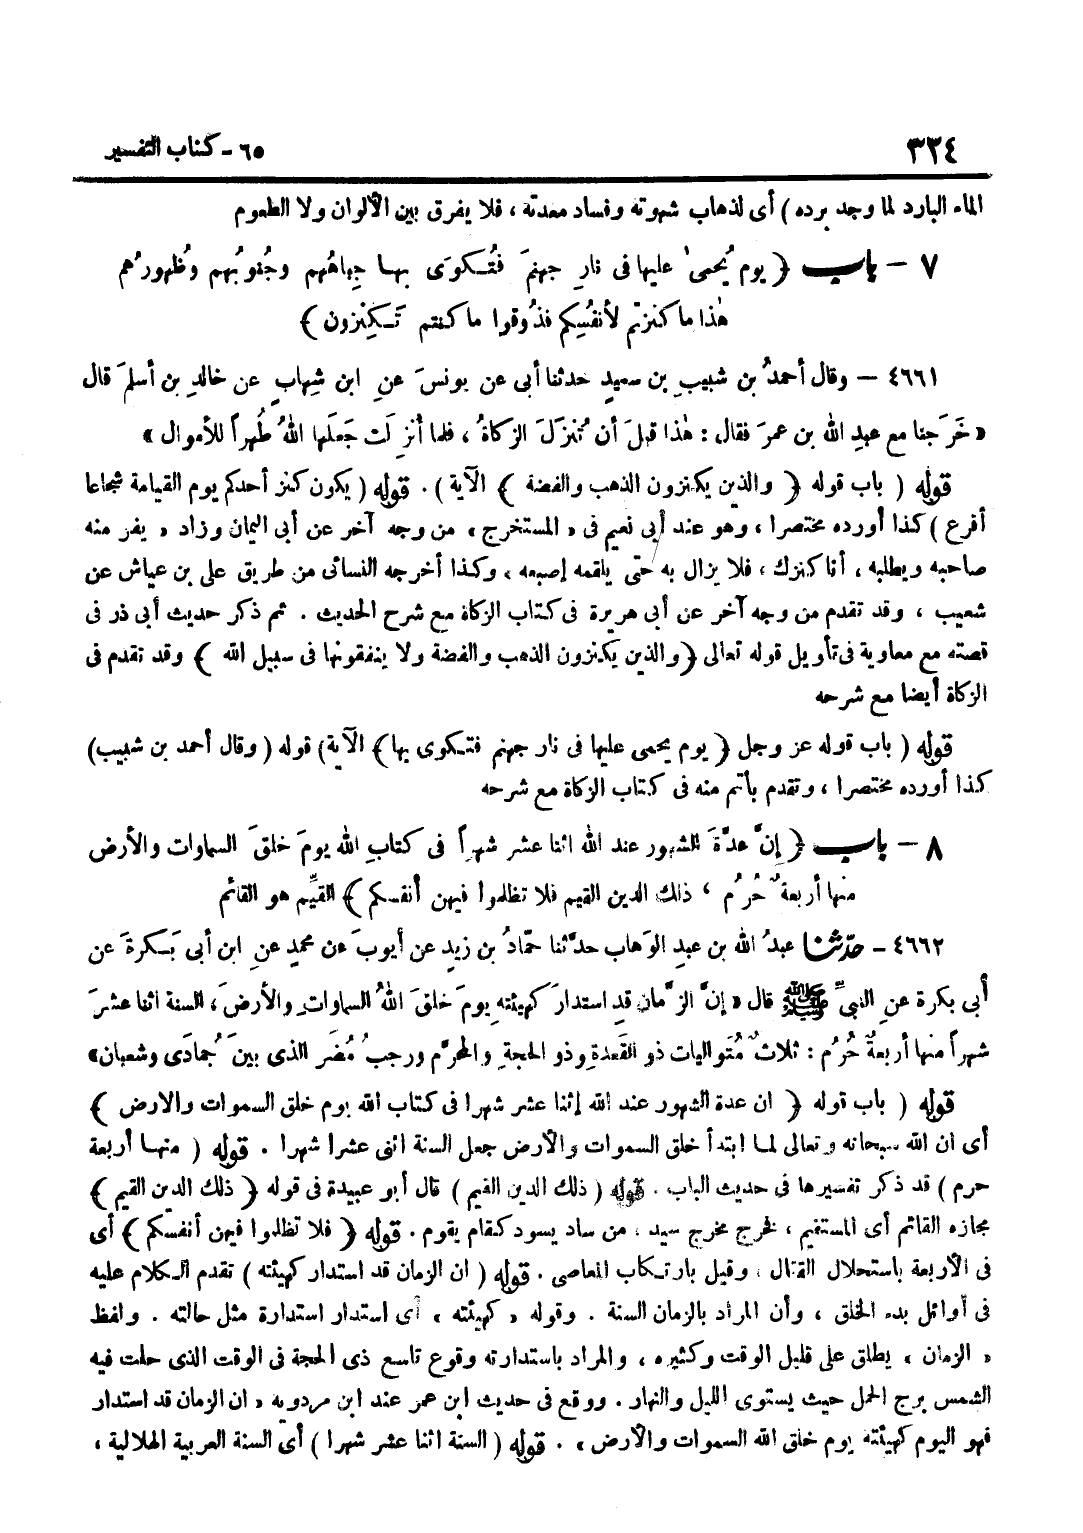 ٣٢٤
٦٥ - كتاب التفسير
الماء البارد لما وجد برده ) أى لذهاب شهوته وفساد معدته ، فلا يفرق بين الألوان ولا الطعوم
٧ - باب ﴿ يوم يُحمىٰ عليها فى نارِ جهنمَ فتُكوَى بها جِباهُهم وجُنوبُهم وظُهورُهم
هٰذا ما كنزتم لأنفُسِكم فذُوقوا ما كنتم تَكنِزون ﴾
٤٦٦١ - وقال أحمدُ بن شبيبِ بن سعيدٍ حدثنا أبى عن يونسَ عنِ ابن شِهابٍ عن خالدِ بن أسلمَ قال
« خَرَجنا مع عبدِ الله بن عمرَ فقال : هٰذا قبلَ أن تُنزَلَ الزكاةُ ، فلما أُنزِلَت جَعلَها اللهُ طُهراً للأموال »
قوله ( باب قوله ﴿ والذين يكنزون الذهب والفضة ﴾ الآية ) . قوله ( يكون كنز أحدكم يوم القيامة شجاعا
أقرع ) كذا أورده مختصرا ، وهو عند أبى نعيم فى « المستخرج » من وجه آخر عن أبى اليمان وزاد « يفر منه
صاحبه ويطلبه ، أنا كنزك ، فلا يزال به حتى يلقمه إصبعه » وكذا أخرجه النسائى من طريق على بن عياش عن
شعيب ، وقد تقدم من وجه آخر عن أبى هريرة فى كتاب الزكاة مع شرح الحديث . ثم ذكر حديث أبى ذر فى
قصته مع معاوية فى تأويل قوله تعالى ﴿ والذين يكنزون الذهب والفضة ولا ينفقونها فى سبيل الله ﴾ وقد تقدم فى
الزكاة أيضا مع شرحه
قوله ( باب قوله عز وجل ﴿ يوم يحمى عليها فى نار جهنم فتكوى بها ﴾ الآية ) قوله ( وقال أحمد بن شبيب )
كذا أورده مختصرا ، وتقدم بأتم منه فى كتاب الزكاة مع شرحه
٨ - باب ﴿ إنَّ عدَّةَ الشهور عند الله اثنا عشر شهراً فى كتابِ الله يومَ خلقَ السماوات والأرض
منها أربعةٌ حُرُم ، ذلك الدين القيم فلا تظلموا فيهن أنفسكم ﴾ القيِّم هو القائم
٤٦٦٢ - حدّثنا عبدُ الله بن عبدِ الوَهاب حدَّثنا حمّادُ بن زيدٍ عن أيوبَ عن محمدٍ عنِ ابن أبى بَكرةَ عن
أبى بكرة عنِ النبىِّ ﷺ قال « إنَّ الزَّمان قدِ استدارَ كهيئتهِ يومَ خلقَ اللهُ السماواتِ والأرضَ ، السنة اثنا عشرَ
شهراً منها أربعةٌ حُرُم : ثلاثٌ مُتوالِيات ذو القَعدةِ وذو الحجةِ والمحرَّم ورجبُ مُضَر الذى بينَ جُمادَى وشعبان »
قوله ( باب قوله ﴿ ان عدة الشهور عند الله إثنا عشر شهرا فى كتاب الله يوم خلق السموات والارض ﴾
أى ان الله سبحانه وتعالى لما ابتدأ خلق السموات والأرض جعل السنة اثنى عشر شهرا . قوله ( منها أربعة
حرم ) قد ذكر تفسيرها فى حديث الباب . قوله ( ذلك الدين القيم ) قال أبو عبيدة فى قوله ﴿ ذلك الدين القيم ﴾
مجازه القائم أى المستقيم ، فخرج مخرج سيد ، من ساد يسود كقام يقوم . قوله ﴿ فلا تظلموا فيهن أنفسكم ﴾ أى
فى الأربعة باستحلال القتال ، وقيل بارتكاب المعاصى . قوله ( ان الزمان قد استدار كهيئته ) تقدم الكلام عليه
فى أوائل بدء الخلق ، وأن المراد بالزمان السنة . وقوله « كهيئته » أى استدار استدارة مثل حالته . ولفظ
« الزمان » يطلق على قليل الوقت وكثيره ، والمراد باستدارته وقوع تاسع ذى الحجة فى الوقت الذى حلت فيه
الشمس برج الحمل حيث يستوى الليل والنهار . ووقع فى حديث ابن عمر عند ابن مردويه « ان الزمان قد استدار
فهو اليوم كهيئته يوم خلق الله السموات والأرض » . قوله ( السنة اثنا عشر شهرا ) أى السنة العربية الهلالية ،